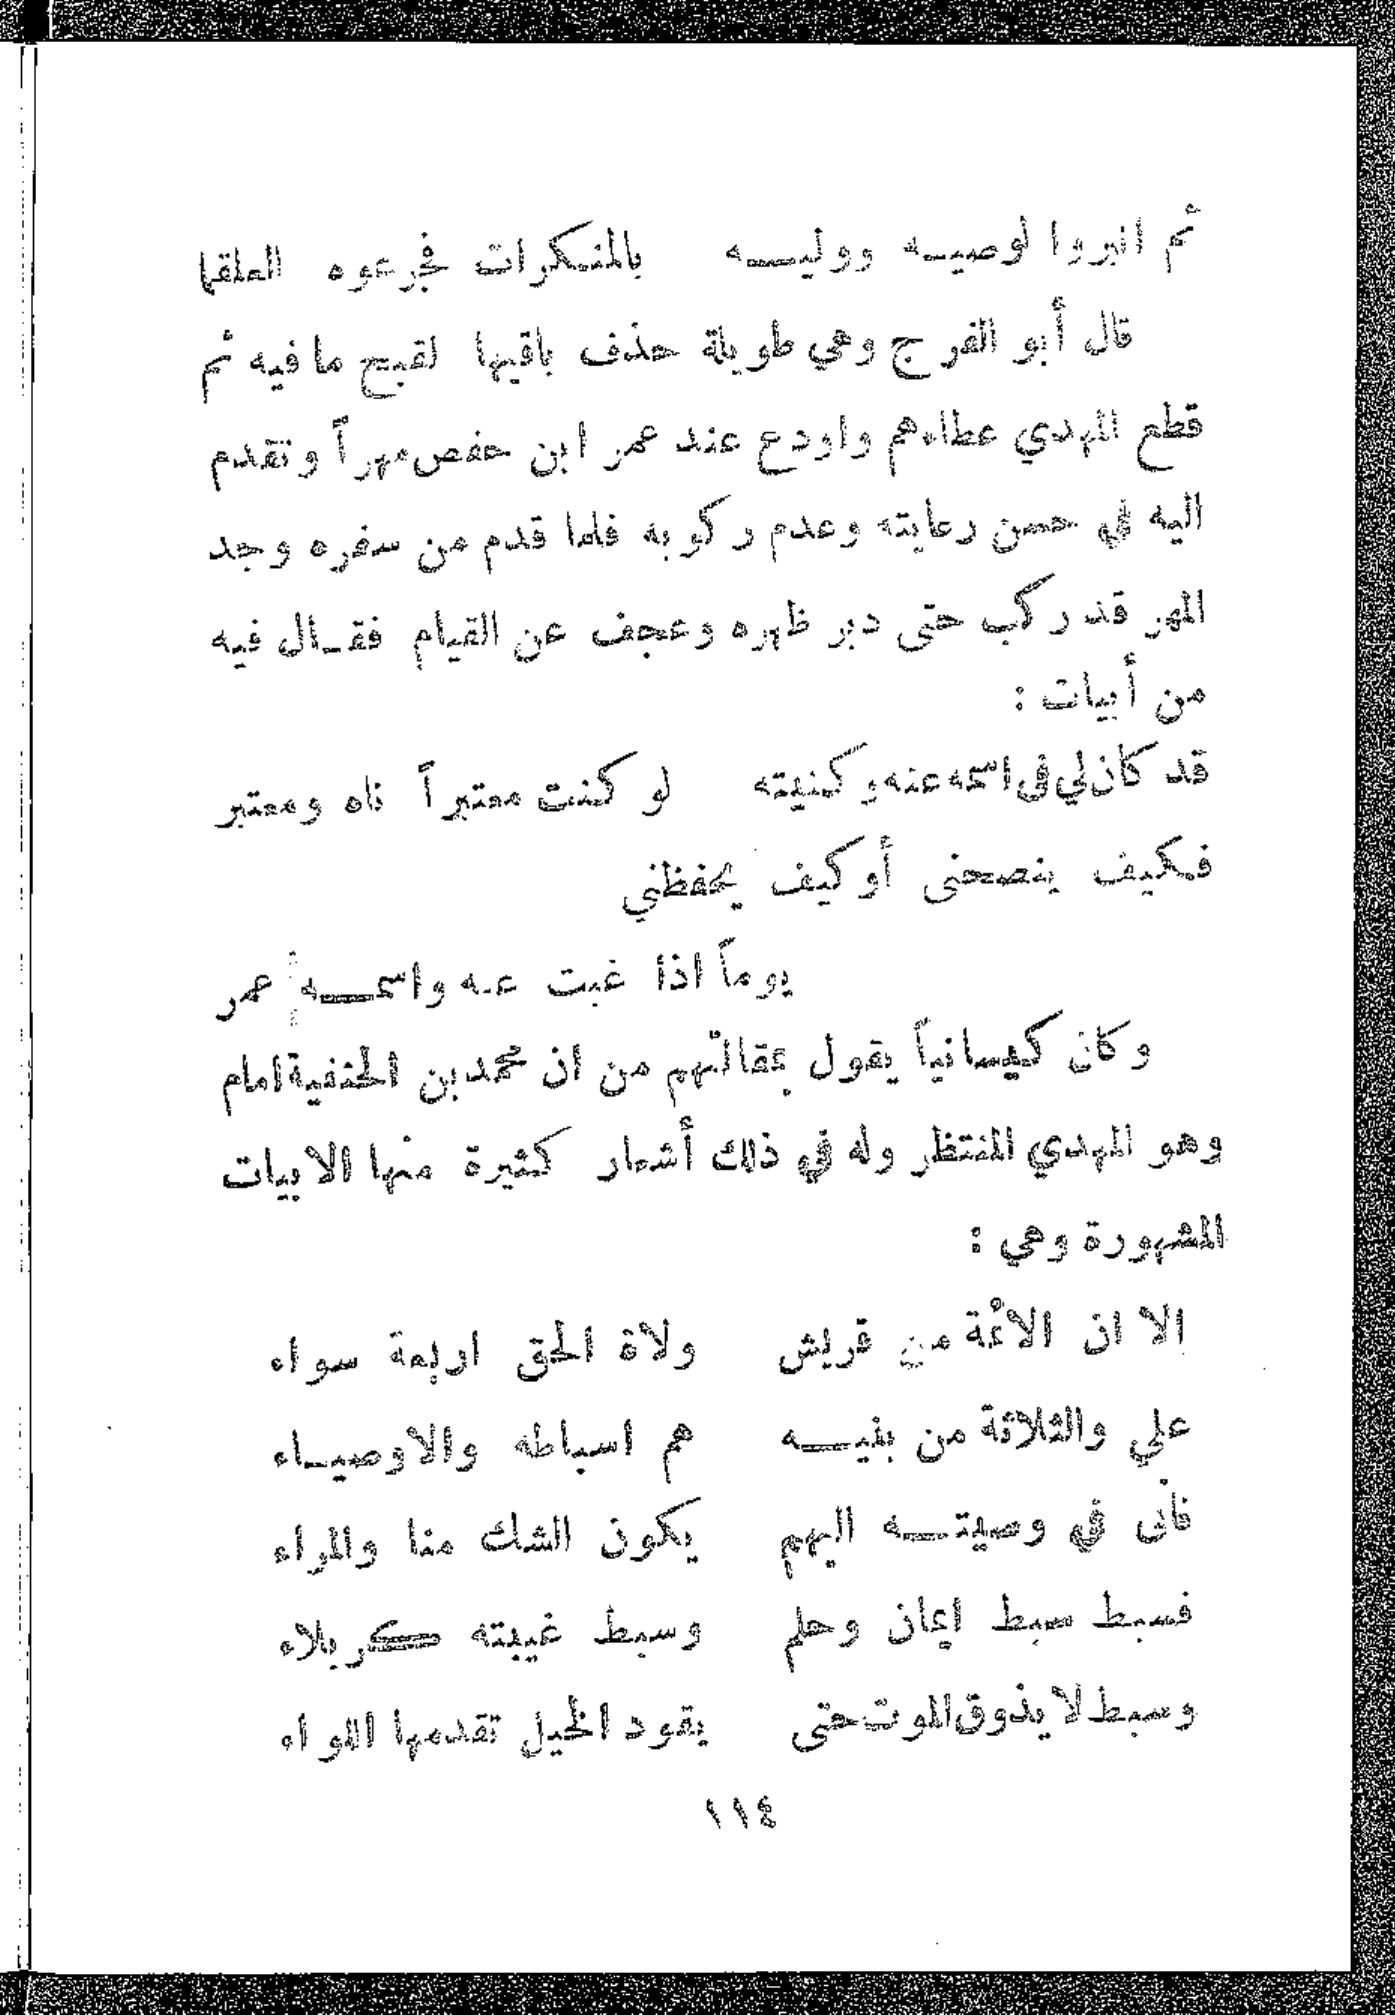 ثم انبروا لوصيـــه ووليـــه بالمنكرات فجرعوه العلقما
قال أبو الفرج وهي طويلة حذف باقيها لقبح ما فيه ثم
قطع المهدي عطاءهم واودع عند عمر ابن حفص مهراً وتقدم
اليه في حسن رعايته وعدم ركوبه فلما قدم من سفره وجد
المهر قد ركب حتى دبر ظهره وعجف عن القيام فقـال فيه
من أبيات :
قد كان لي في اسمه عنه وكنيته لو كنت معتبراً ناه ومعتبر
فكيف ينصحنى أو كيف يحفظني
يوماً اذا غبت عنه واسمـــه عمر
وكان كيسانياً يقول بمقالتهم من ان محمد بن الحنفية امام
وهو المهدي المنتظر وله في ذلك أشعار كثيرة منها الابيات
المشهورة وهي :
الا ان الائمة من قريش ولاة الحق اربعة سواء
علي والثلاثة من بنيـــه هم اسباطه والاوصيـاء
فأنى في وصيتـــه اليهم يكون الشك منا والمراء
فسبط سبط ايمان وحلم وسبط غيبته كربلاء
وسبط لا يذوق الموت حتى يقود الخيل تقدمها اللواء
١١٤